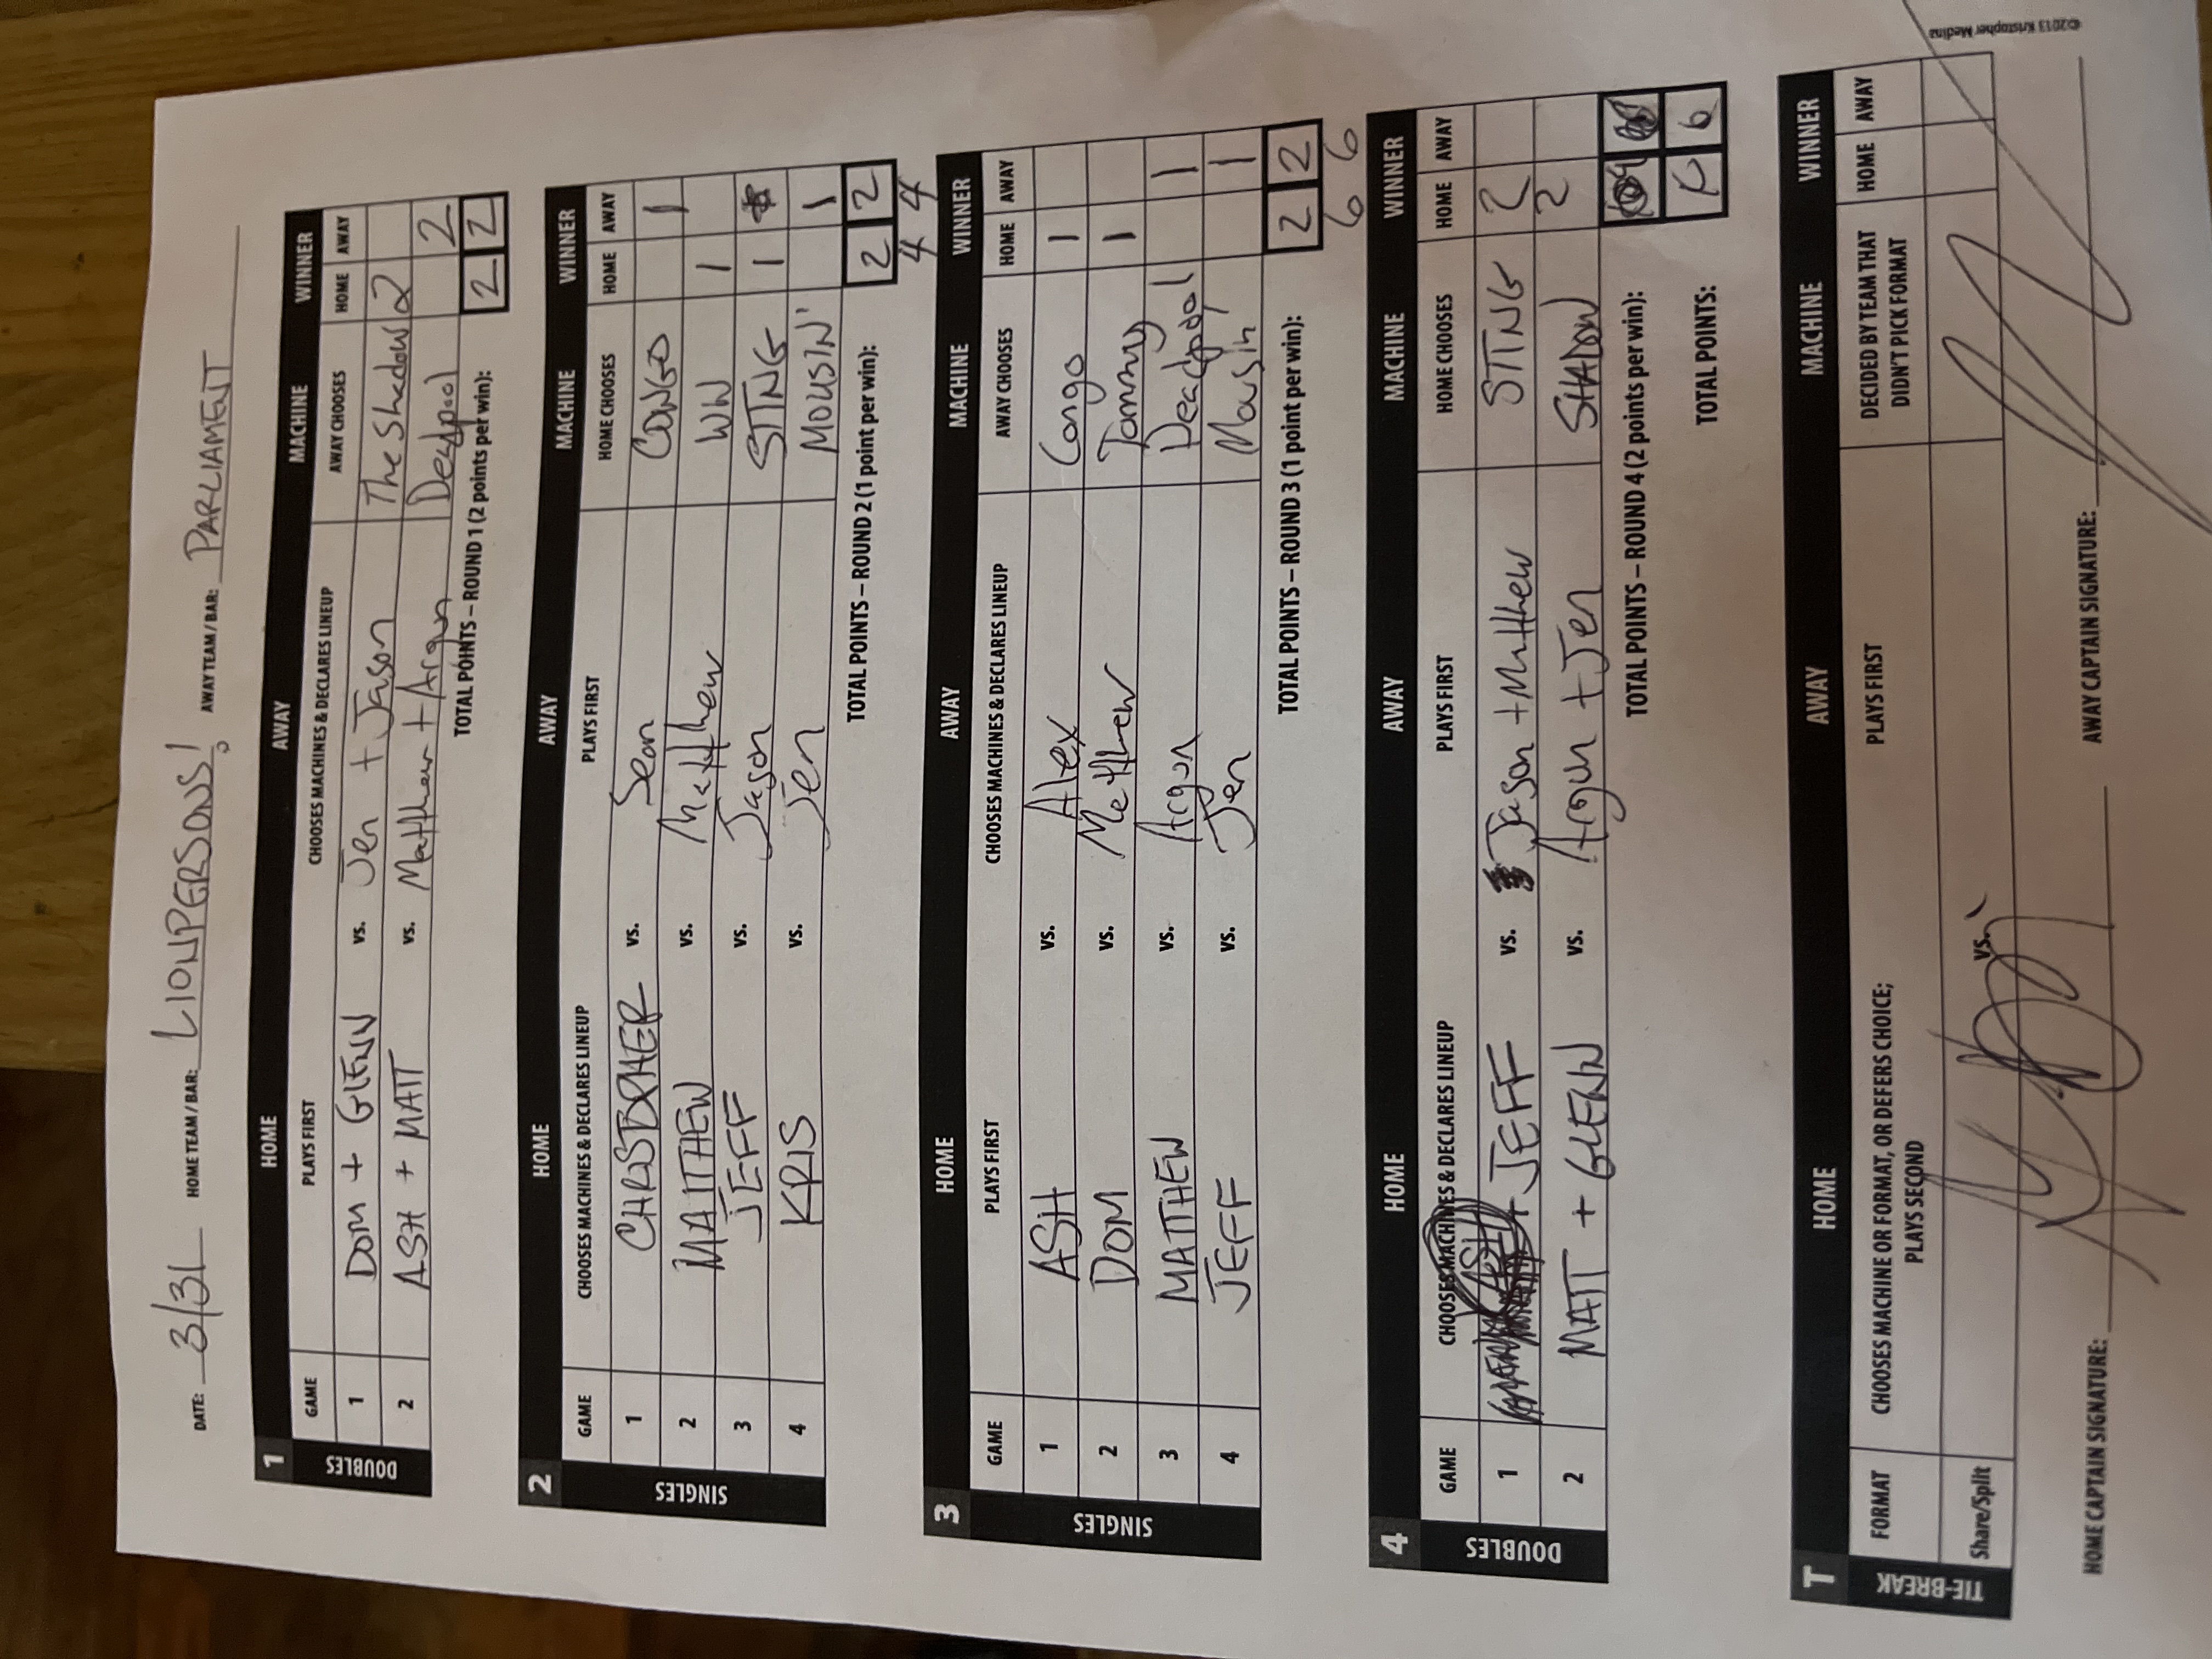 DATE: 3/31 HOME TEAM / BAR: LIONPERSONS! AWAY TEAM / BAR: PARLIAMENT
1 HOME AWAY MACHINE WINNER
GAME PLAYS FIRST CHOOSES MACHINES & DECLARES LINEUP AWAY CHOOSES HOME AWAY
DOUBLES
1 DOM + GLENN vs. Jen + Jason The Shadow 2
2 ASH + MATT vs. Matthew + Arqun Deadpool 2
TOTAL POINTS – ROUND 1 (2 points per win): 2 2
2 HOME AWAY MACHINE WINNER
GAME CHOOSES MACHINES & DECLARES LINEUP PLAYS FIRST HOME CHOOSES HOME AWAY
SINGLES
1 vs. Sean CONGO 1
2 MATTHEW vs. Matthew WW 1
3 JEFF vs. Jason STTNG 1
4 KRIS vs. Jen MOUSIN' 1
TOTAL POINTS – ROUND 2 (1 point per win): 2 2
4 4
3 HOME AWAY MACHINE WINNER
GAME PLAYS FIRST CHOOSES MACHINES & DECLARES LINEUP AWAY CHOOSES HOME AWAY
SINGLES
1 ASH vs. Alex Congo 1
2 DOM vs. Matthew Tommy 1
3 MATTHEW vs. Arqun Deadpool 1
4 JEFF vs. Jen Mousin 1
TOTAL POINTS – ROUND 3 (1 point per win): 2 2
6 6
4 HOME AWAY MACHINE WINNER
GAME CHOOSES MACHINES & DECLARES LINEUP PLAYS FIRST HOME CHOOSES HOME AWAY
DOUBLES
1 ASH + JEFF vs. Jason + Matthew STTNG 2
2 MATT + GLENN vs. Arqun + Jen SHADOW 2
TOTAL POINTS – ROUND 4 (2 points per win):
TOTAL POINTS: 6
T HOME AWAY MACHINE WINNER
FORMAT CHOOSES MACHINE OR FORMAT, OR DEFERS CHOICE; PLAYS SECOND PLAYS FIRST DECIDED BY TEAM THAT DIDN'T PICK FORMAT HOME AWAY
TIE-BREAK
Share/Split vs.
HOME CAPTAIN SIGNATURE: AWAY CAPTAIN SIGNATURE:
©2013 Kristopher Medina